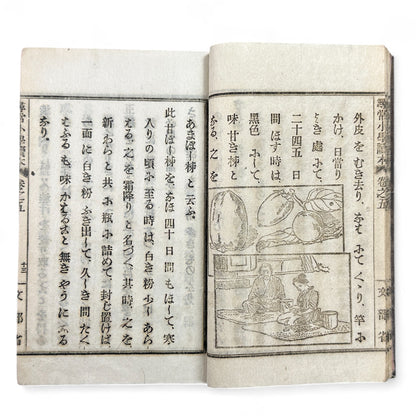 尋常小學讀本 卷之五
文部省
外皮をむき去り、なはにてくゝり、竿に
かけ、日當り
よき處にて
二十四五日
間ほす時は、
黑色にして、
味甘き柿と
なる。之を
あまぼし柿と云ふ。
此甘ぼし柿を、なほ四十日間もほして、寒
入りの頃に至る時は、白き粉少しあら
はる。之を霜降りと名づく。其時、之を
新わらと共に瓶に詰めて、封じ置けば、
一面に白き粉ふき出して、久しき間たく
はふるも、味かはること無きやうにな
るなり。
尋常小學讀本 卷之五
十三
文部省